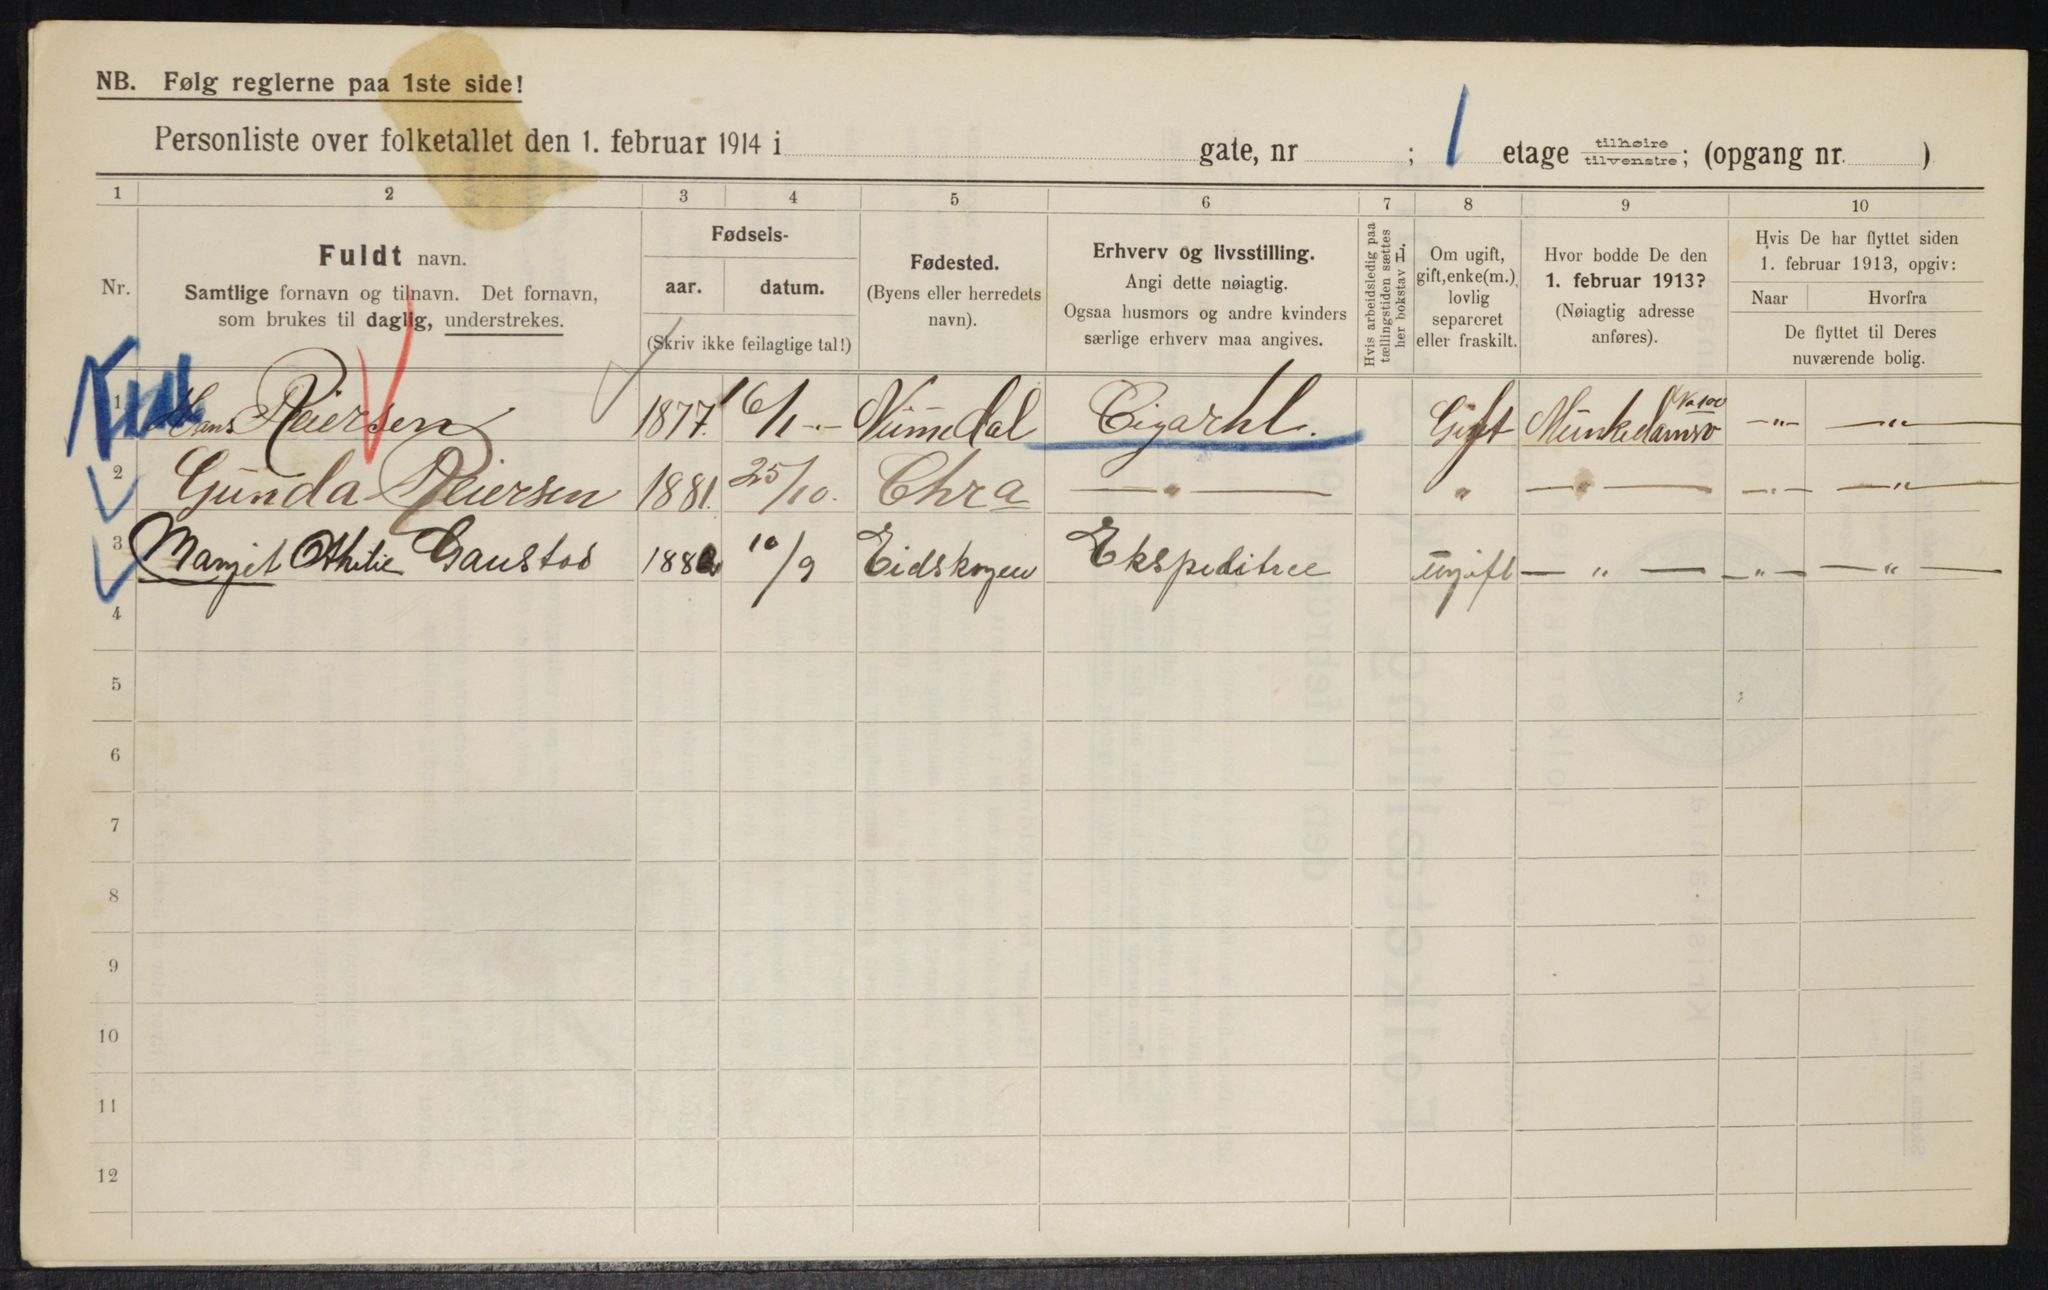 NB. Følg reglerne paa 1ste side!
Personliste over folketallet den 1. februar 1914 i gate, nr ; 1 etage tilhøire/tilvenstre; (opgang nr. )
1 2 3 4 5 6 7 8 9 10
Nr.
Fuldt navn.
Samtlige fornavn og tilnavn. Det fornavn,
som brukes til daglig, understrekes.
Fødsels-
aar. datum.
(Skriv ikke feilagtige tal!)
Fødested.
(Byens eller herredets
navn).
Erhverv og livsstilling.
Angi dette nøiagtig.
Ogsaa husmors og andre kvinders
særlige erhverv maa angives.
Hvis arbeidsledig paa
tællingstiden sættes
her bokstav L.
Om ugift,
gift, enke(m.),
lovlig
separeret
eller fraskilt.
Hvor bodde De den
1. februar 1913?
(Nøiagtig adresse
anføres).
Hvis De har flyttet siden
1. februar 1913, opgiv:
Naar Hvorfra
De flyttet til Deres
nuværende bolig.
1 Hans Reiersen 1877. Numedal Cigarhl. Gift Munkedamsv —„— —„—
2 Gunda Reiersen 1881. 25/10. Chra —„— „ —„— —„— —„—
3 Margit Gaustad 10/9 Eidskogen Ekspeditrice Ugift —„— —„— —„—
4
5
6
7
8
9
10
11
12